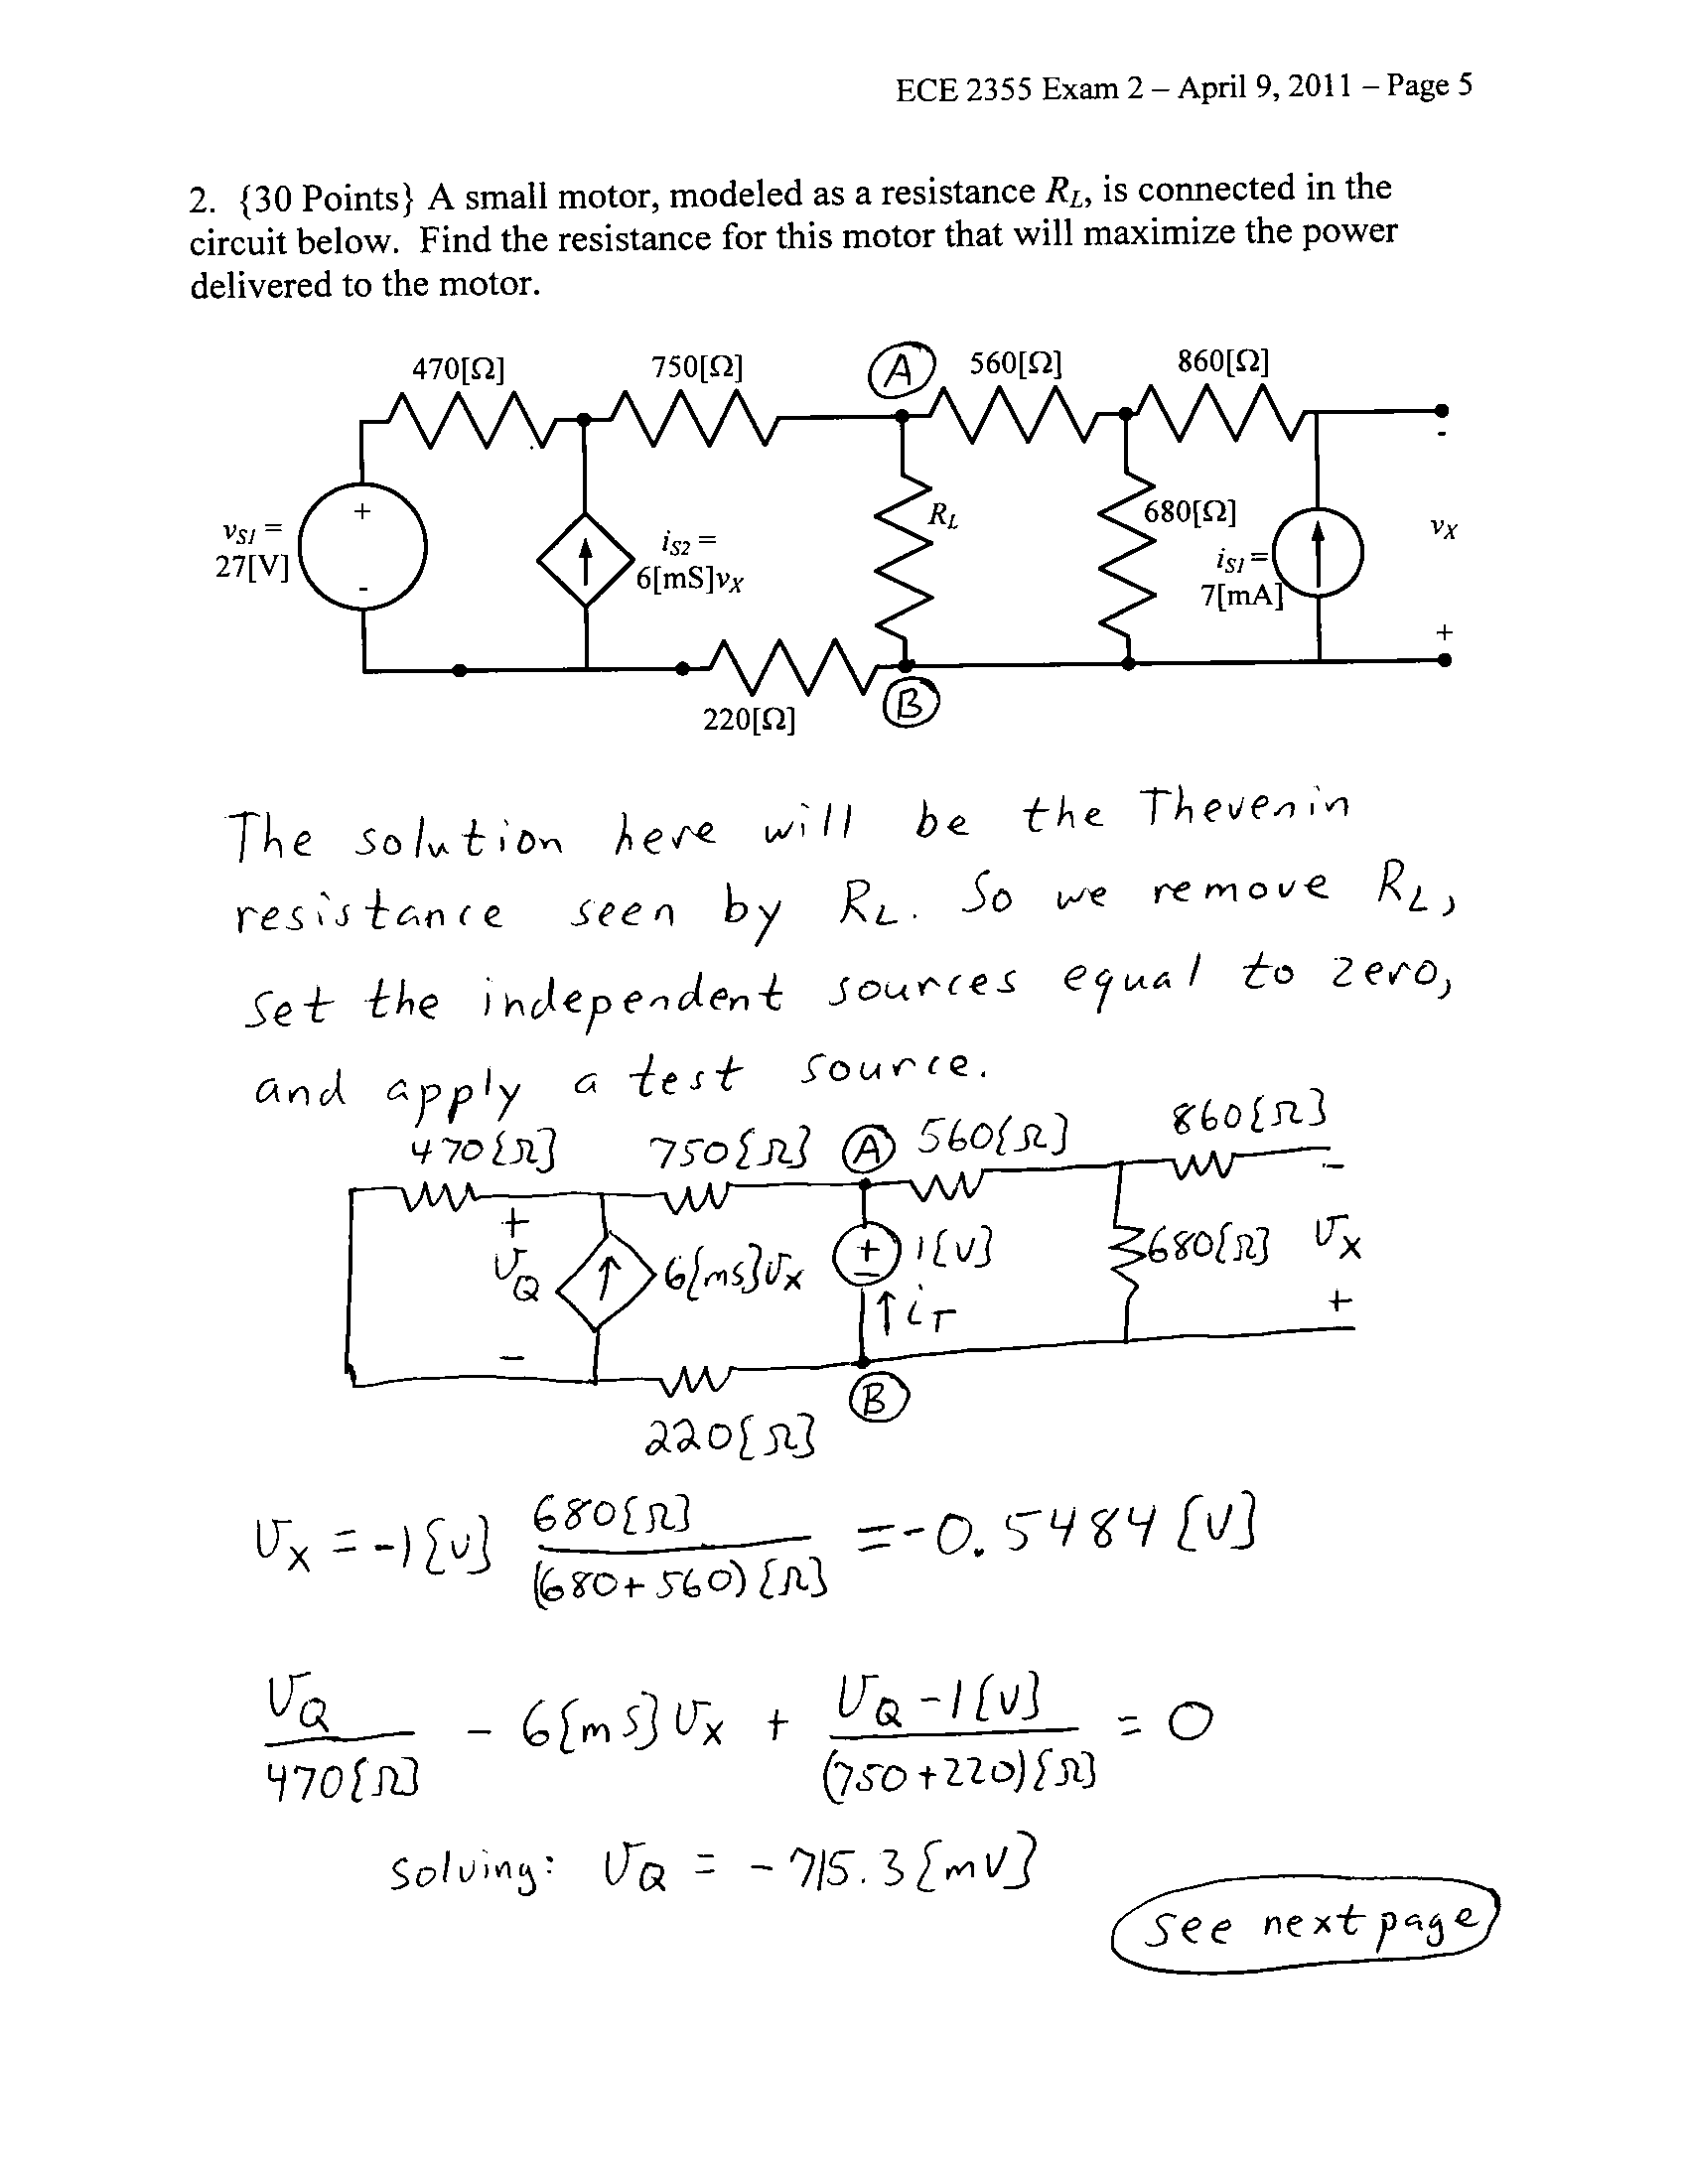 ECE 2355 Exam 2 – April 9, 2011 – Page 5
2. {30 Points} A small motor, modeled as a resistance R_L, is connected in the
circuit below. Find the resistance for this motor that will maximize the power
delivered to the motor.
470[Ω] 750[Ω] A 560[Ω] 860[Ω]
-
+ R_L 680[Ω]
v_S1 = i_S2 = v_X
27[V] 6[mS]v_X i_S1=
- 7[mA]
+
220[Ω] B
The solution here will be the Thevenin
resistance seen by R_L. So we remove R_L,
set the independent sources equal to zero,
and apply a test source.
470{Ω} 750{Ω} A 560{Ω} 860{Ω}
-
+
v_Q 6{mS}v_X + - 1{V} 680{Ω} v_X
i_T +
-
B
220{Ω}
v_X = -1{V} 680{Ω} / (680+560){Ω} = -0.5484{V}
v_Q / 470{Ω} - 6{mS}v_X + v_Q -1{V} / (750+220){Ω} = 0
solving: v_Q = -715.3{mV}
see next page